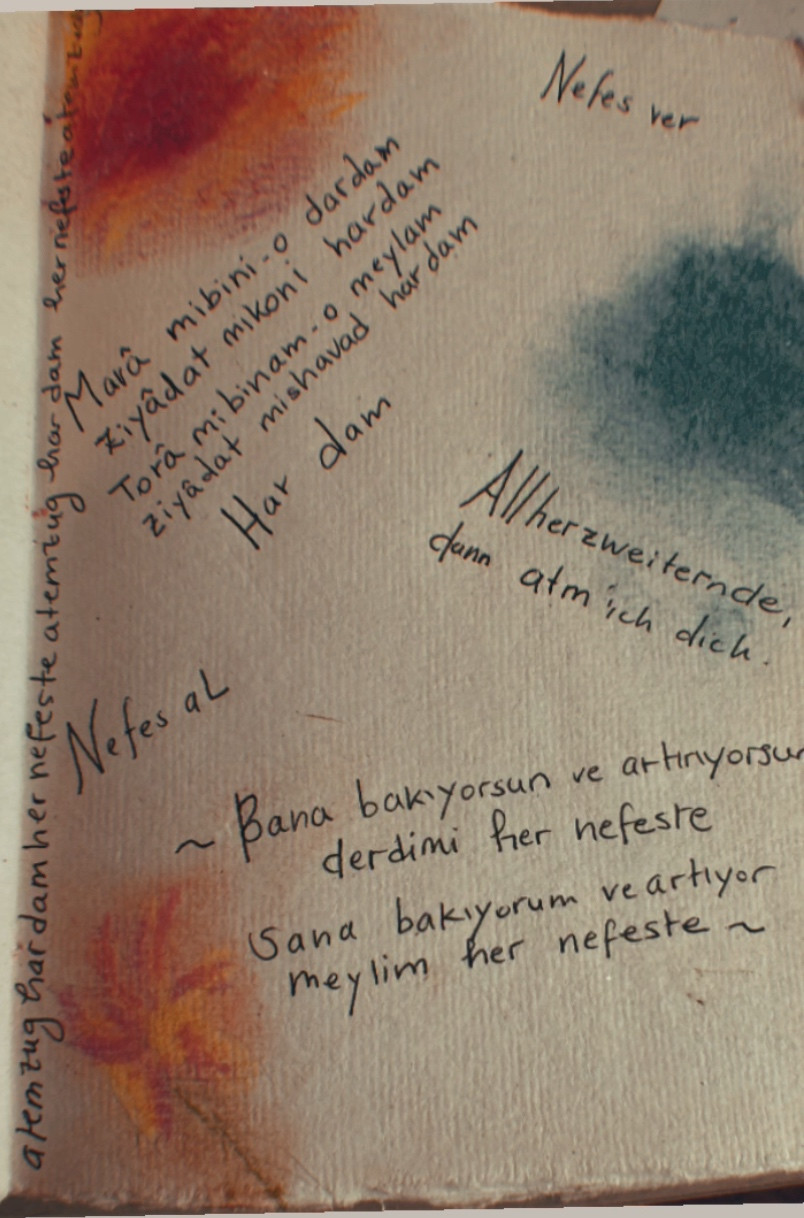 Nefes ver
Marâ mibini-o dardam
ziyâdat mikoni hardam
Torâ mibinam-o meylam
ziyâdat mishavad hardam
Har dam
Allherzweiternde,
dann atm ich dich.
Nefes al
~ Bana bakıyorsun ve artırıyorsun
derdimi her nefeste
Sana bakıyorum ve artıyor
meylim her nefeste ~
atemzug har dam her nefeste atemzug har dam her nefeste atemzug